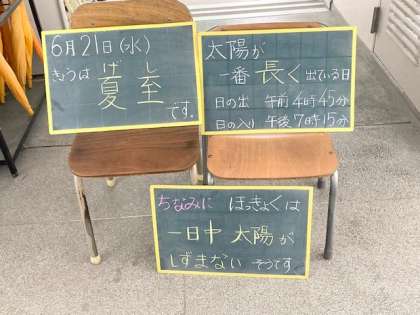 6月21日(水)
きょうは
げし
夏至
です.
太陽が
一番長く出ている日
日の出 午前4時45分
日の入り 午後7時15分
ちなみに ほっきょくは
一日中 太陽が
しずまない そうです